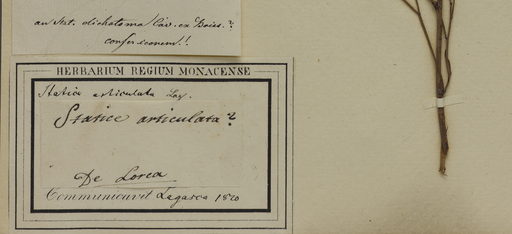 an Stat. dichotoma Cav. ex Boiss.?
confer iconem!!
HERBARIUM REGIUM MONACENSE
Statice articulata
Statice articulata?
De Lorca
Communicavit Lagasca 1820